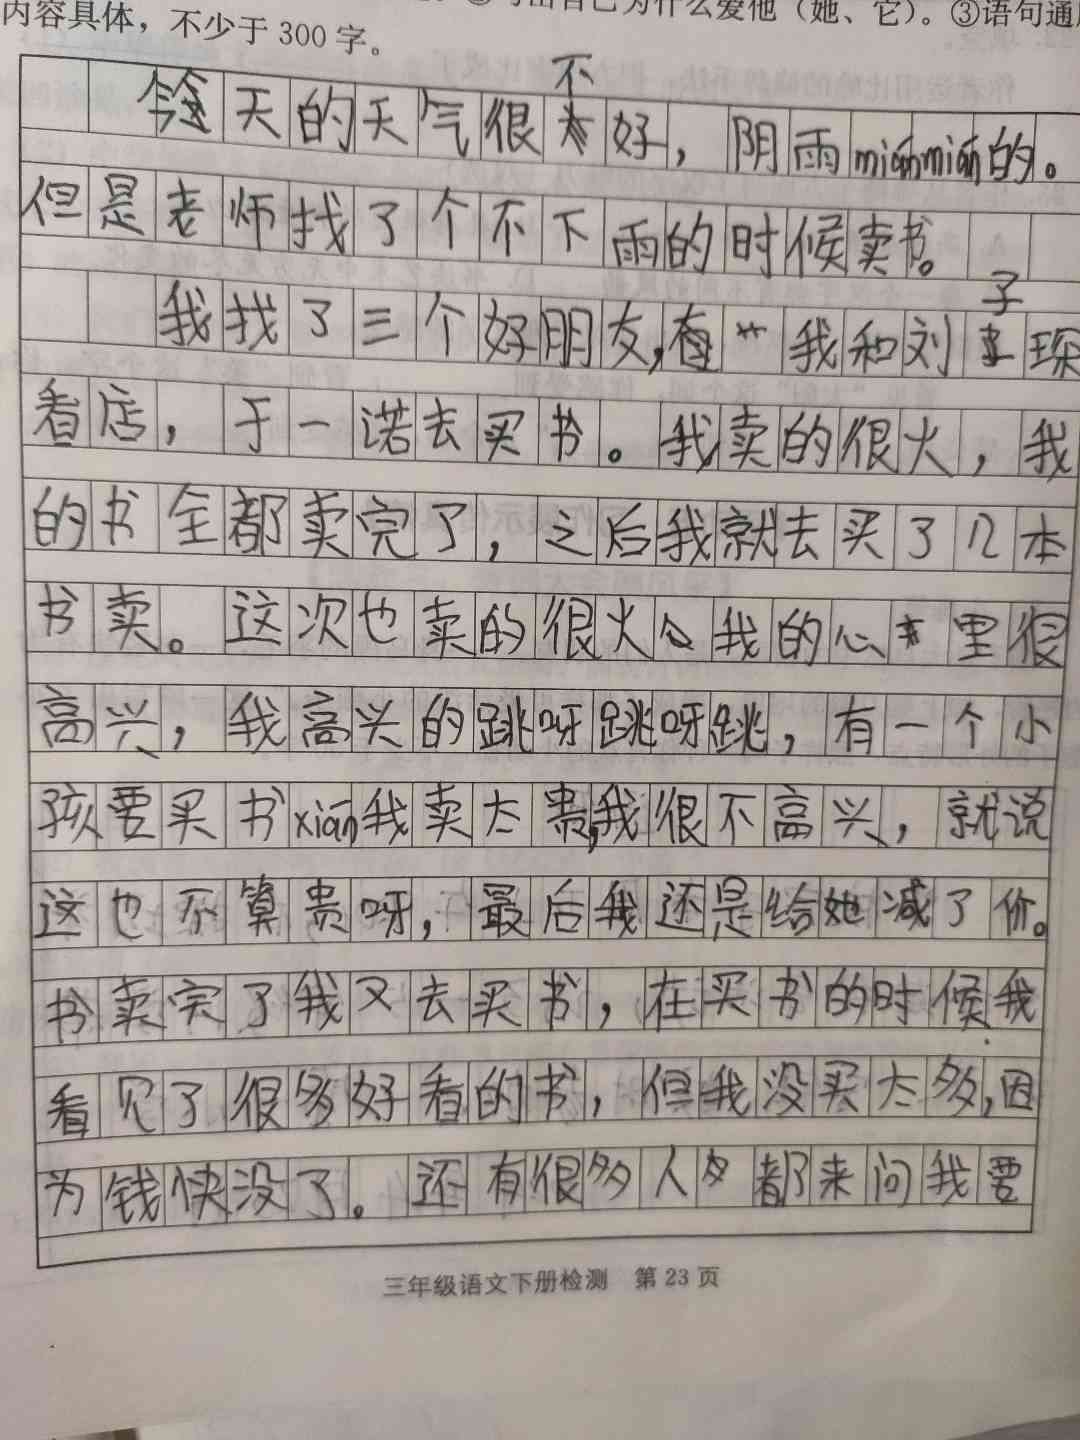 内容具体，不少于300字。
今天的天气很不好，阴雨miánmián的。
但是老师找了个不下雨的时候卖书。
我找了三个好朋友，我和刘子琛
看店，于一诺去买书。我卖的很火，我
的书全都卖完了，之后我就去买了几本
书卖。这次也卖的很火。我的心里很
高兴，我高兴的跳呀跳呀跳，有一个小
孩要买书xián我卖太贵，我很不高兴，就说
这也不算贵呀，最后我还是给她减了价。
书卖完了我又去买书，在买书的时候我
看见了很多好看的书，但我没买太多，因
为钱快没了。还有很多人都来问我要
三年级语文下册检测 第23页